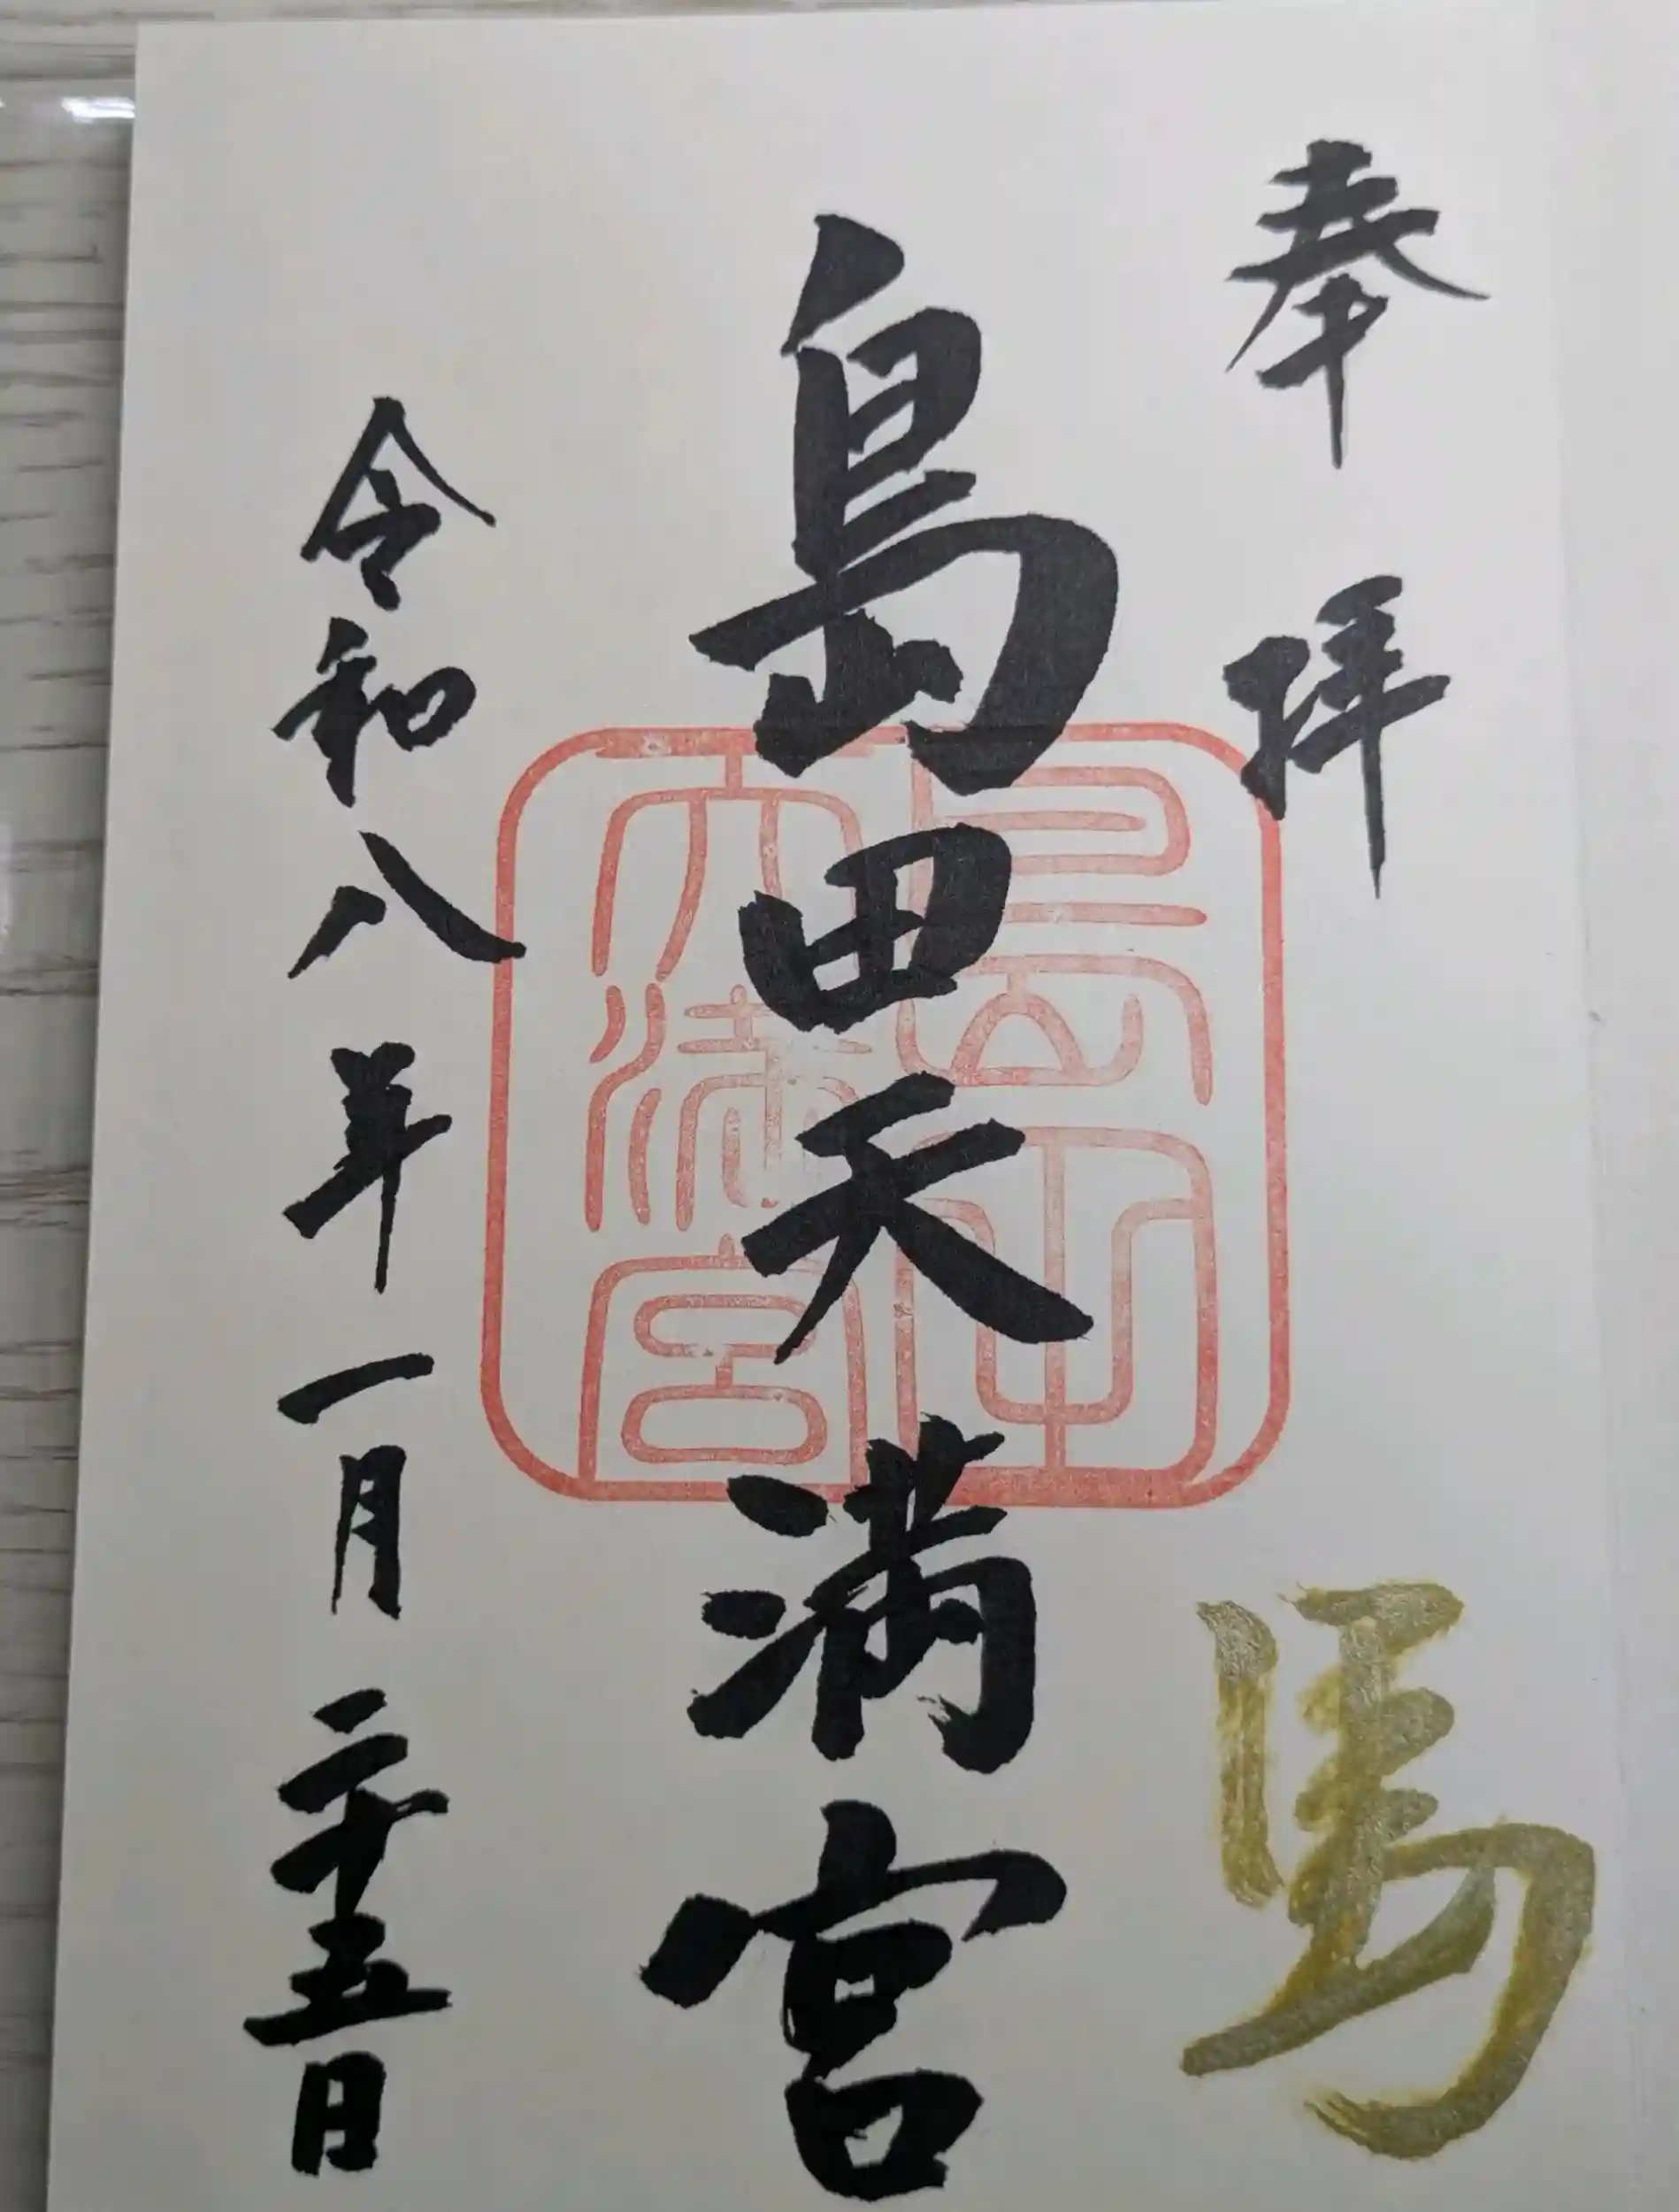 奉拝
馬
島田天満宮
島田天満宮
令和八年一月二十五日